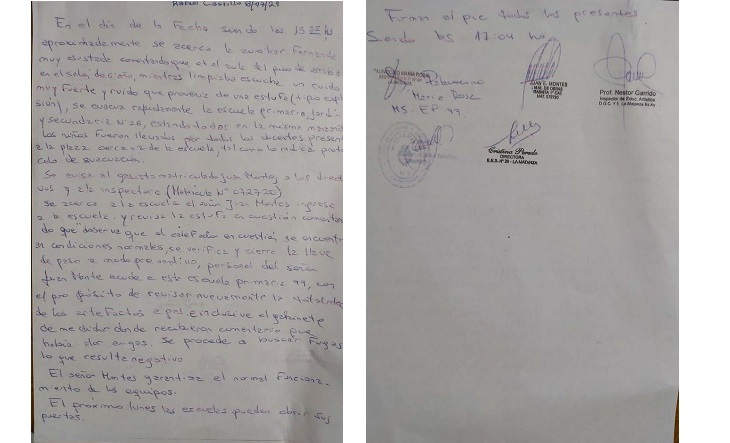 Rafael Castillo 8/07/21
En el día de la Fecha siendo las 15 25 hs
aproximadamente se acerca la auxiliar Fernanda
muy asustada comentando que el el aula del piso de arriba
en el salón de sino, mientras limpiaba escucha un ruido
muy Fuerte y ruido que provenia de una estufa (tipo explo
sión), se evacua rapidamente la escuela primaria, jardín
y secundaria N° 26, estando todas en la misma
los niños Fueron llevados por todos los docentes presentes
a la plaza cercana de la escuela, tal como lo indica proto
colo de evacuación.
Se avisa al gasista matriculado Juan Montes, a los direct
vos y a la inspectora (Matricula N° 072720)
se acerca a la escuela el señor Juan Montes ingresa
a la escuela y revisa la estufa en cuestión comentan
do que "observa que el artefacto en cuestión se encuentra
en condiciones normales, se verifica y cierra la llave
de paso a modo preventivo, personal del señor
Juan Montes acude a esta escuela primaria 99, con
el propósito de revisar nuevamente la
de los artefactos a gas, e inclusive el gabinete
de medidor donde recibieron comentario que
había olor en gas. Se procede a buscar Fugas
lo que resulta negativo
El señor Montes garantiza el normal Funciona
miento de los equipos.
El próximo lunes las escuelas pueden abrir sus
puertas.
Firman al pie todos los presentes
Siendo las 17:04 hs.
JUAN E. MONTES
MAT. DE OBRAS
Maria Rosa
MS. EP 99
Prof. Nestor Garrido
Inspector de Educ. Artística
D.G.C. Y E. La Matanza
Cristina Pereda
DIRECTORA
E.E.S. N° 26 - LA MATANZA